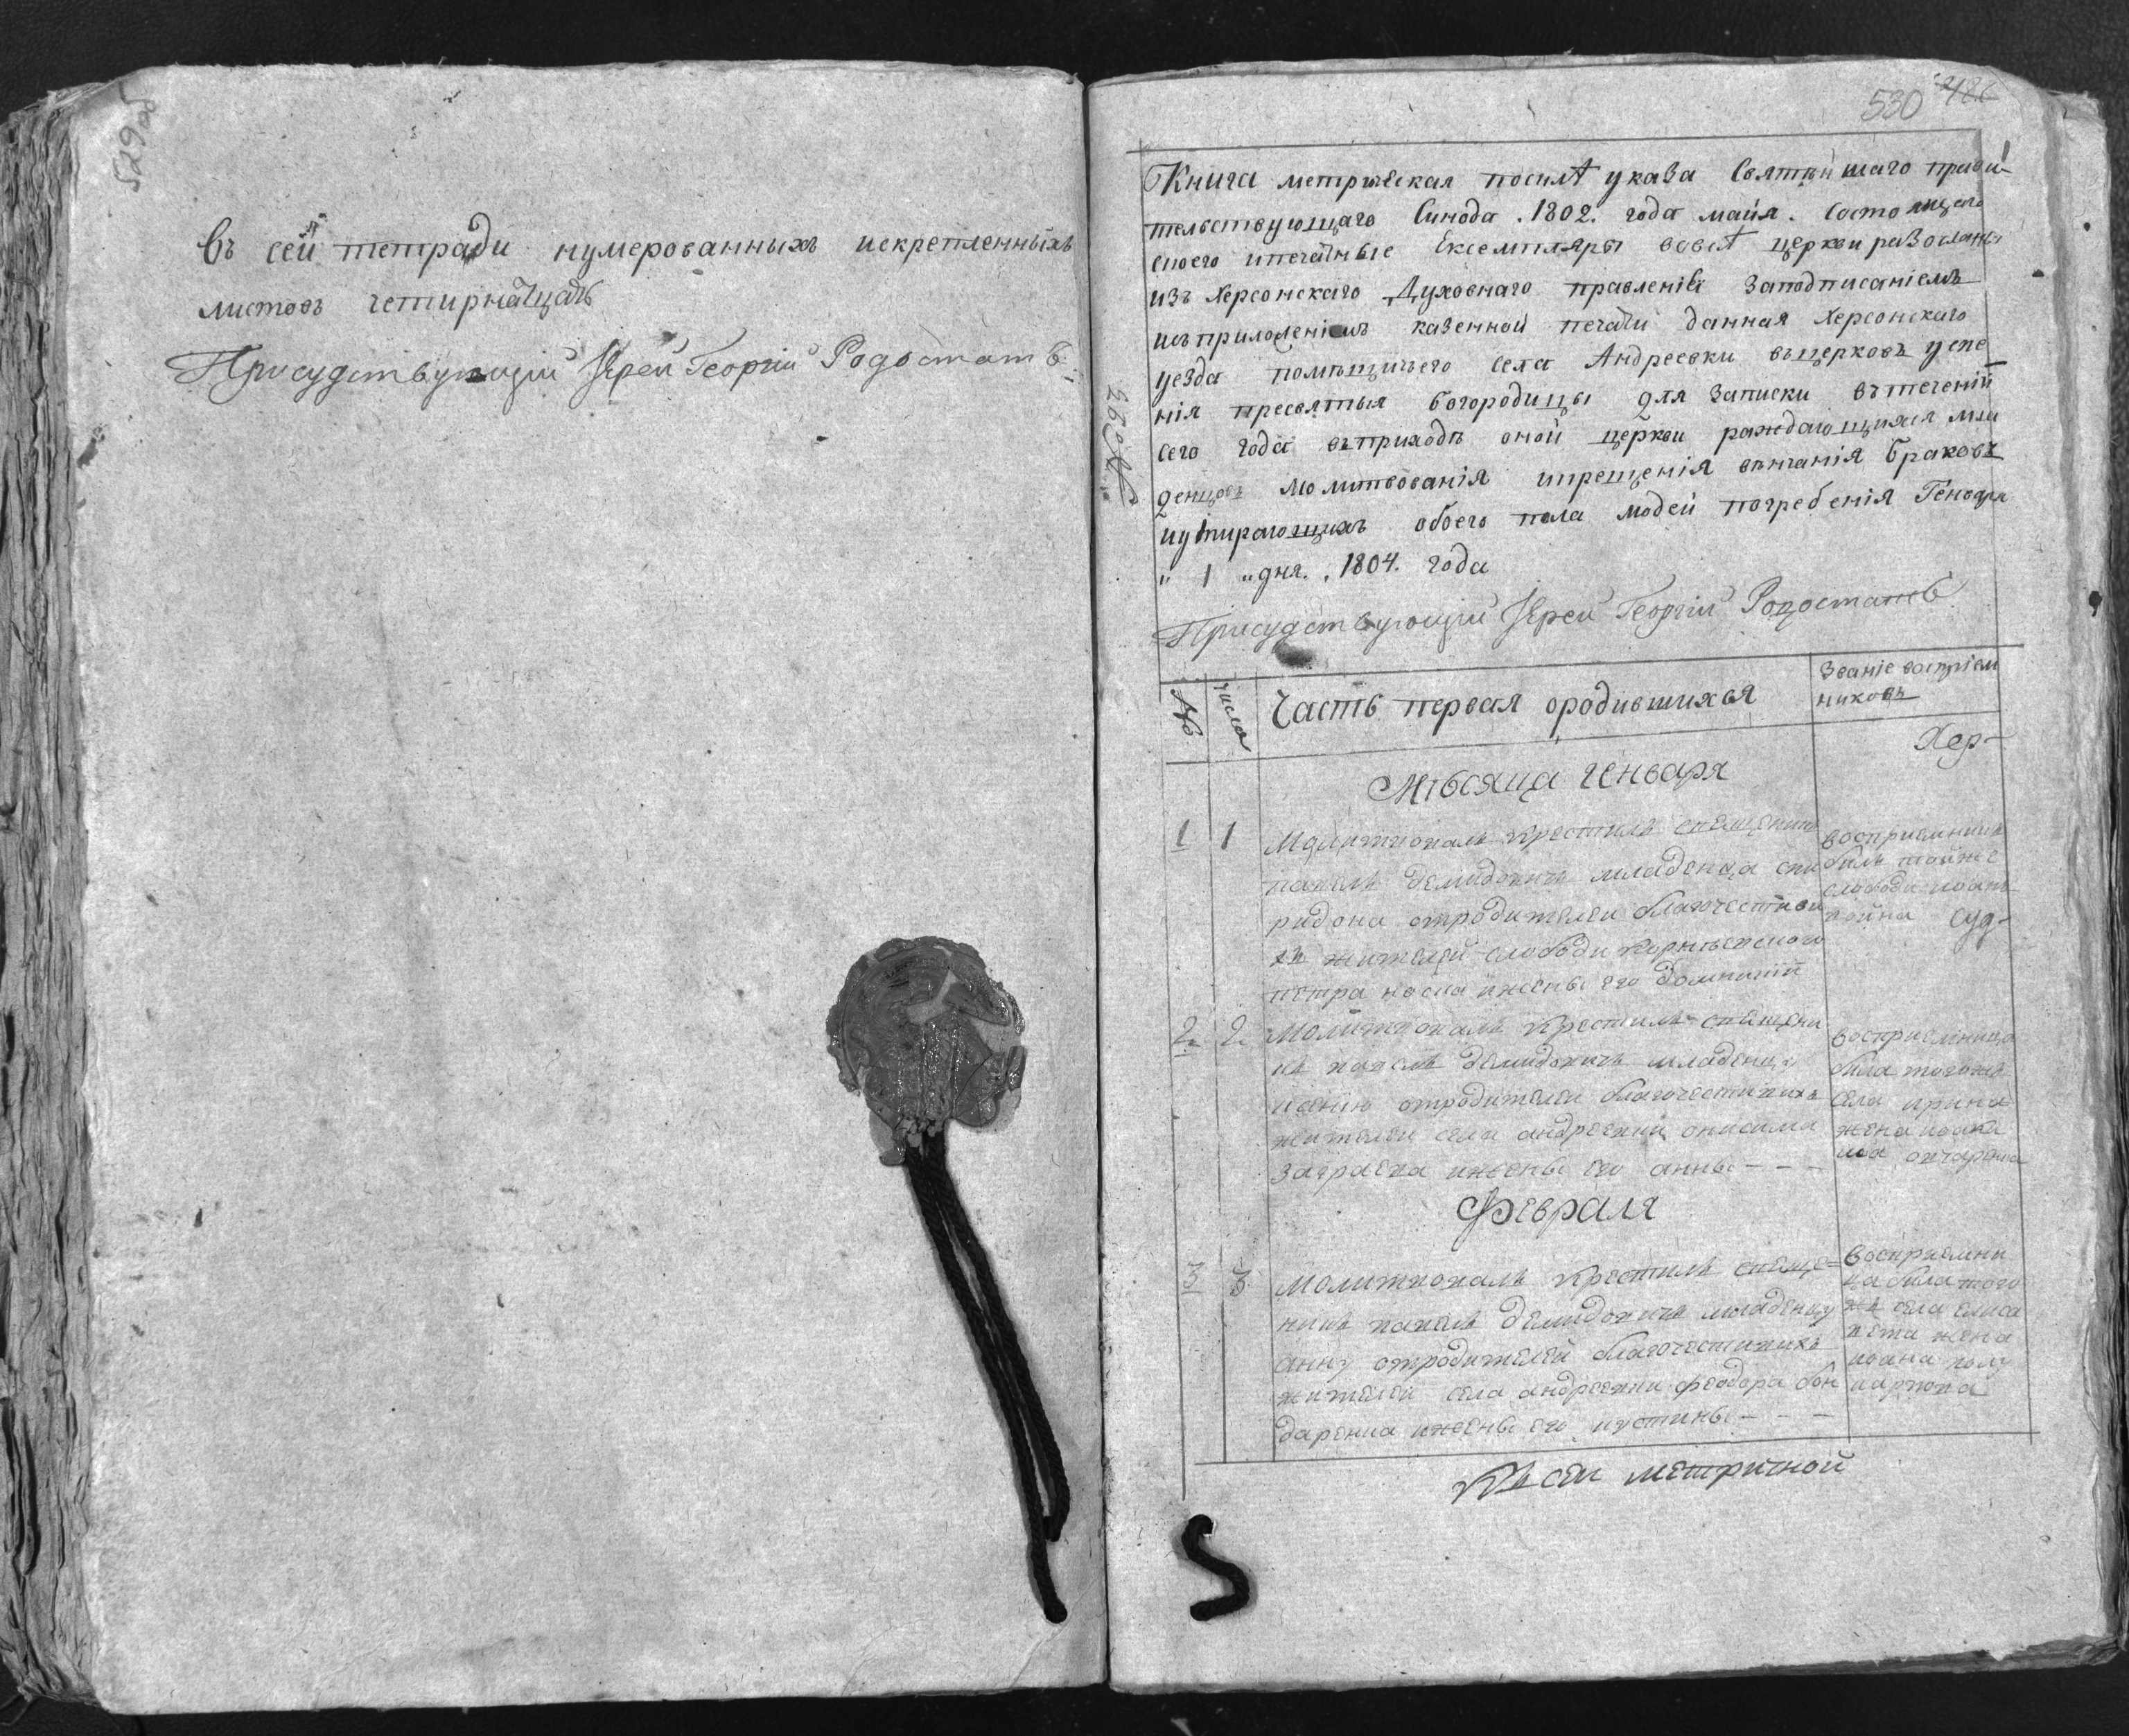 529об
Въ сей тетради нумерованныхъ искрепленныхъ
листовъ четирнатцать
Присудствующий Иерей Георгий Родостатъ
530 486
Книга метрическая посилѣ указа Святѣйшаго прави-
тельствующаго Синода .1802. года майя. состоящаго
своего ипечатные Ексемпляры вовсѣ церкви разосланы
изъ Херсонскаго Духовнаго правленія Заподписаніемъ
исприложеніемъ казенной печати данная Херсонскаго
уезда помѣщичьего села Андреевки вьцерковъ успе
нія пресвятыя богородицы для записки втеченій
сего года вприходѣ оной церкви раждающихся мла
денцовъ молитвованія икрещенія вѣнчанія браковъ
иумирающихъ обоего пола людей погребенія Генваря
" 1 " дня. .1804. года
Присудствующий Иерей Георгий Родостатъ
№ число Часть первая ородившихъся Званіе воспріем
никовъ
Хер-
Мѣсяца генваря
1 1 Молитвовалъ крестилъ священикъ
павелъ демидовичъ младенца спи
ридона отродителей благочестиви
хъ жителей слободи
петра носа ижены его домникій
восприемникъ
билъ тойже
слободи
суд-
2 2 Молитвовалъ крестилъ священи
къ павелъ демидовичъ младенца
отродителей благочестивихъ
жителей села андреевки онисима
ижены его анны - - -
восприемница
била тогожъ
села ирина
жена
Февраля
3 3 Молитвовалъ крестилъ священ=
никъ павелъ демидовичъ младенцу
анну отродителей благочестивихъ
жителей села андреевки феодора бон
даренка ижены его иустины - - -
восприемни
ца била того
жъ села елиса
вета жена
иоана
Въ сей метричной